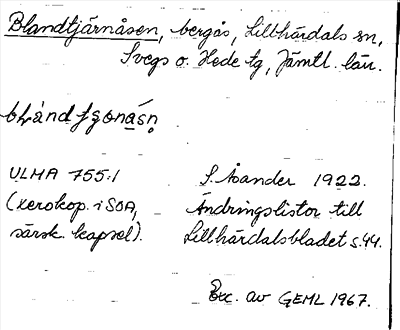 Blandtjärnåsen, bergås, Lillhärdals sn,
Svegs o. Hede tg, Jämtl. län.
ULMA 755:1
(xerokop. i SOA,
särsk. kapsel).
S. Åsander 1922.
Ändringslistor till
Lillhärdalsbladet s. 44.
Exc. av GEML 1967.